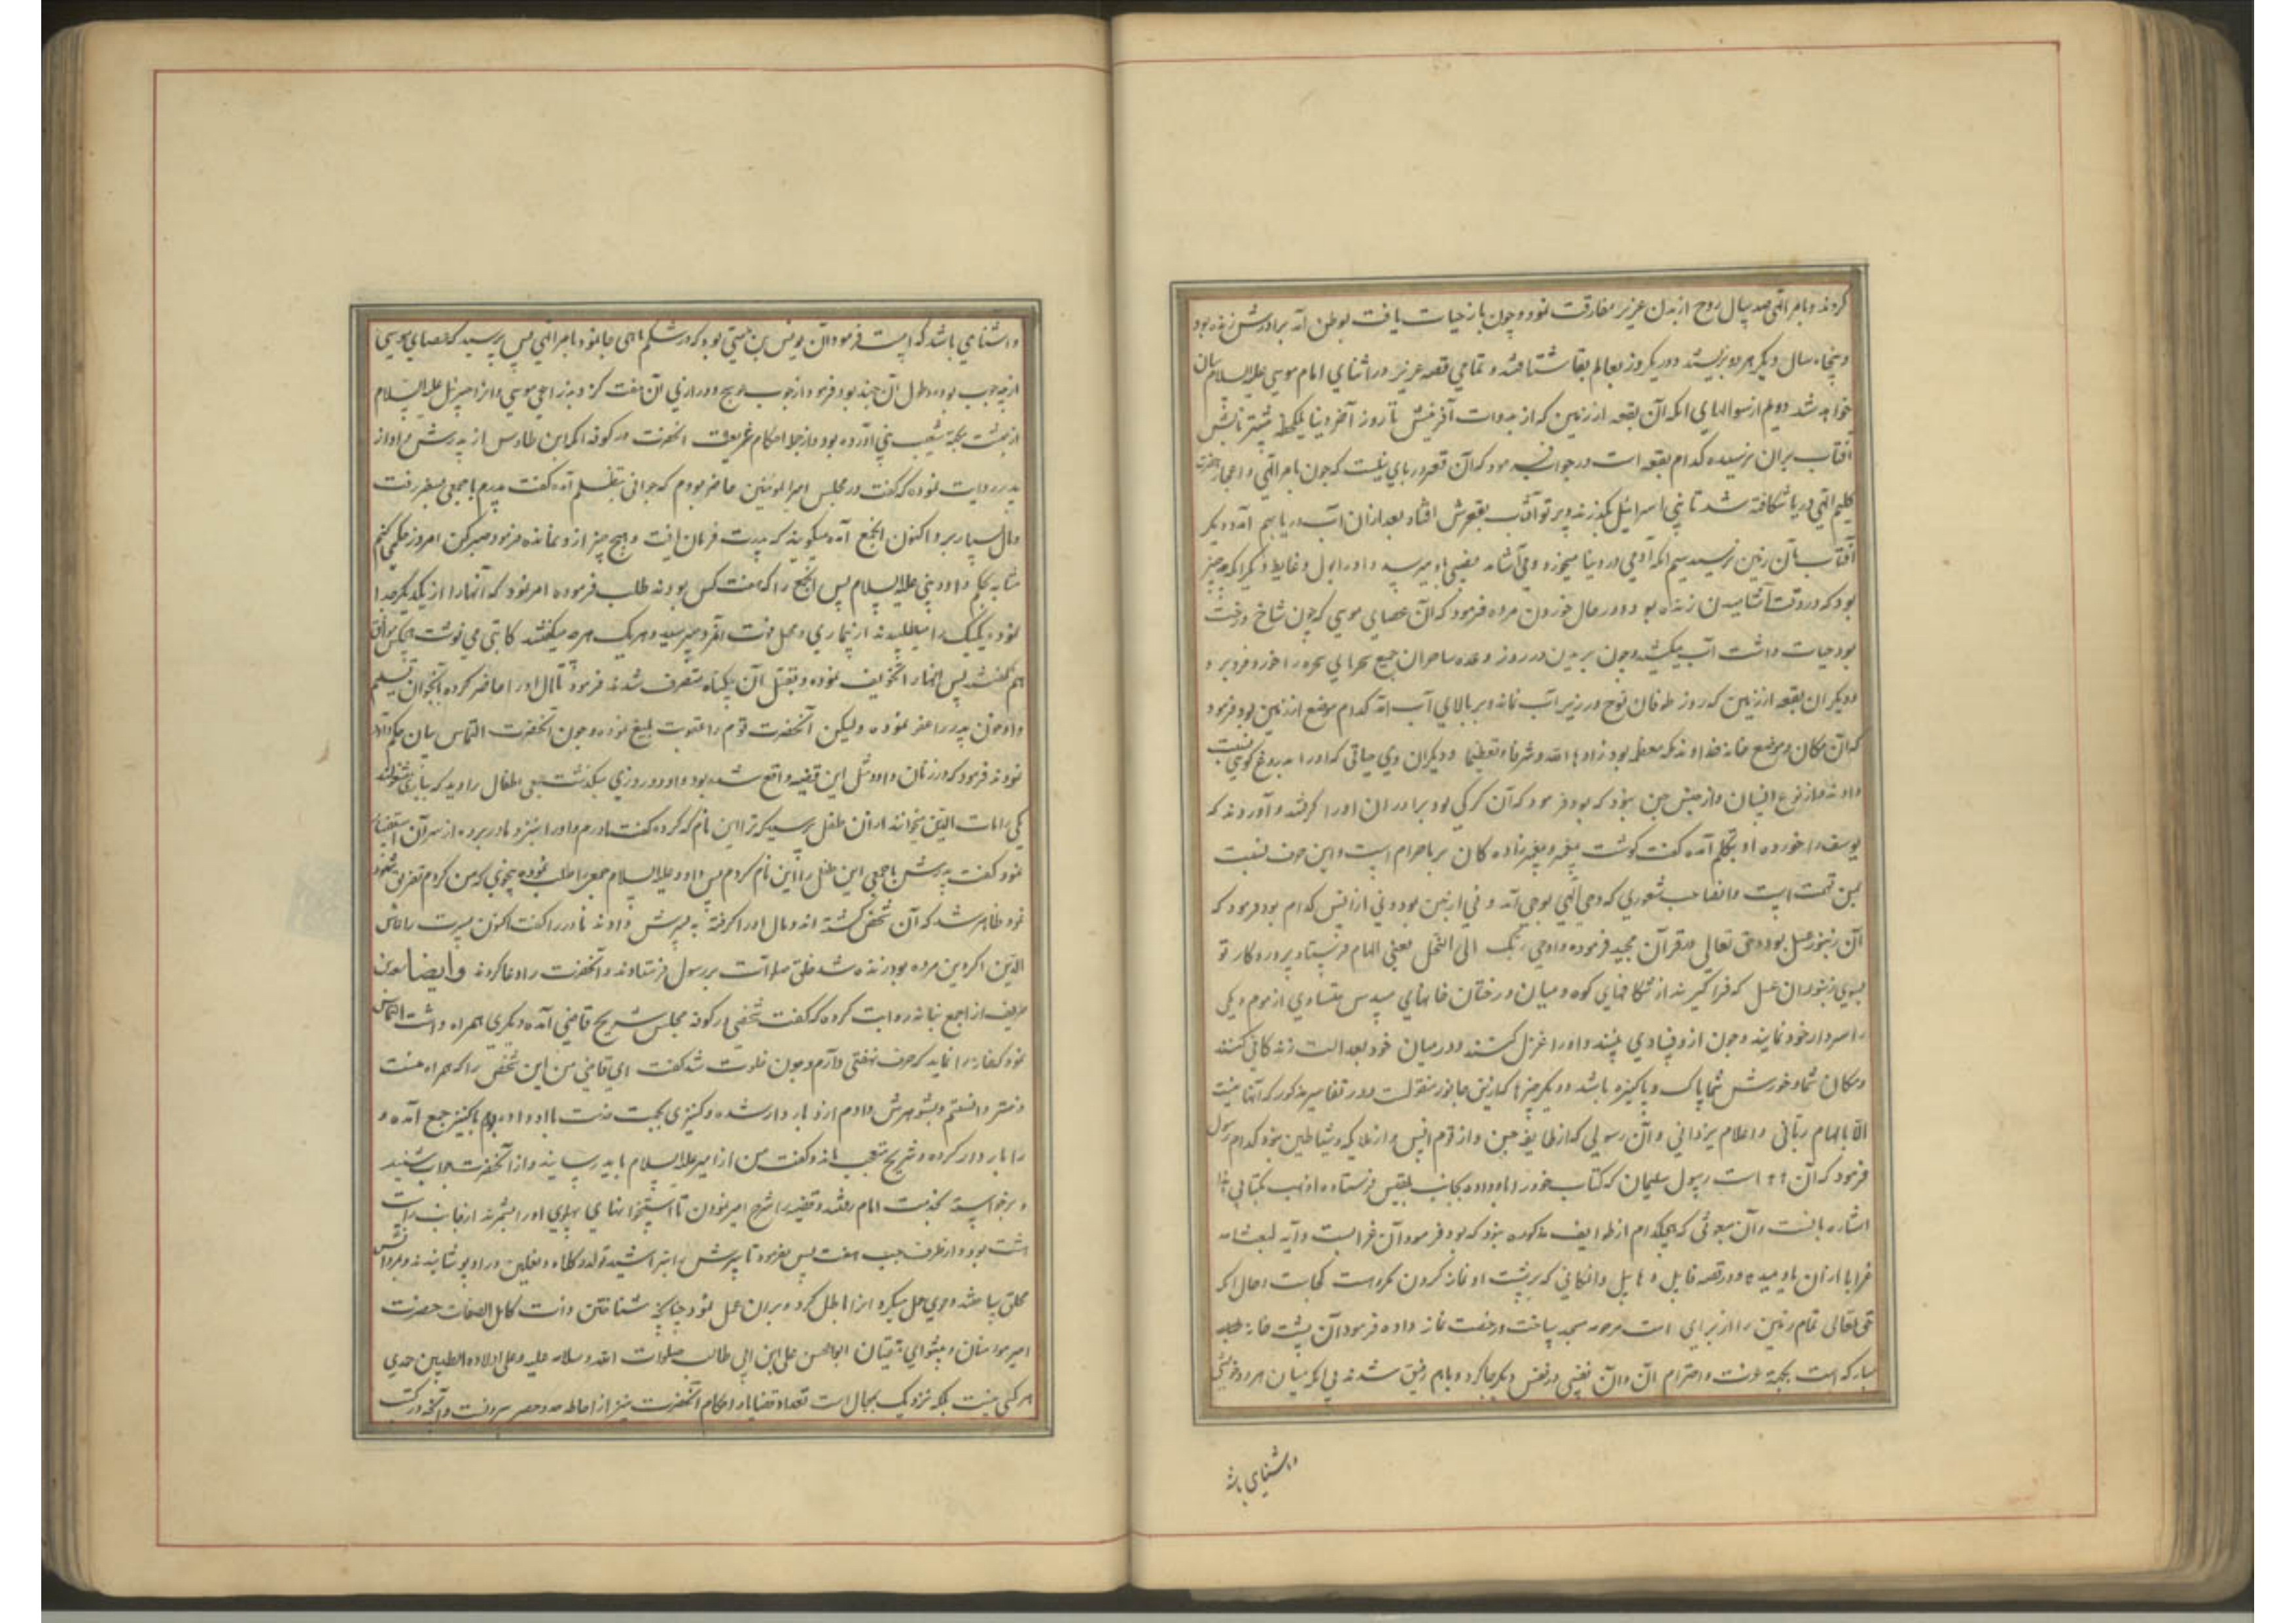 کردند و بامر الهی صد سال روح از بدن عزیر مفارقت نمود و چون باز حیات یافت بوطن آمد برادرش زنده بود
و پنجاه سال دیگر هر دو بزیستند و در یکروز بعالم بقا شتافتند و تمامی قصه عزیر در اثنای امام موسی علیه السلام بیان
خواهد شد دویم از سوالهای آنکه آن بقعه از زمین که از بدوات آفرینش تا روز آخر دنیا یکلحظه بیشتر تابش
آفتاب بران نرسیده کدام بقعه است در جواب فرمود که آن قعر دریای نیلست که چون بامر الهی و اعجاز حضرت
کلیم الهی دریا شکافته شد تا بنی اسرائیل بگذرند و پرتو آفتاب بقعرش افتاد بعد ازان آب دریا بهم آمد و دیگر
آفتاب بآن زمین نرسید سیم آنکه آدمی در دنیا میخورد و می آشامد بعضی باو میرسد و او را بول و غایط دیگر آنکه چه چیز
بود که در وقت آشامیدن زنده بود و در حال خوردن مرده فرمود که آن عصای موسی که چون شاخ درخت
بود حیات داشت آب میکشید و چون بریدن در روز وعده ساحران جمیع سحرهای سحره را خورد و فرو برد و
و دیگر آن بقعه از زمین که روز طوفان نوح در زیر آب نماند و بر بالای آب آمد کدام موضع از زمین بود فرمود
که آن مکان و موضع خانه خداوند مکه معظمه بود زادها الله شرفا و تعظیما و دیگر آن ذی حیاتی که او را بدروغ گویی نسبت
دادند و از نوع انسان و از جنس جن نبود که بود فرمود که آن گرگی بود برادران او را گرفتند و آوردند که
یوسف را خورده او بتکلم آمده گفت گوشت پیغمبر و پیغمبر زاده کان بر ما حرام است و این حرف نسبت
بمن تهمت است و انصاحب شعوری که وحی الهی بوی آمد و نی از جن بود و نی از انس کدام بود فرمود که
آن زنبور عسل بود و حق تعالی در قرآن مجید فرموده و اوحی ربک الی النحل یعنی الهام فرستاد پروردکار تو
بسوی زنبوران عسل که فرا گیرند از شکافهای کوه و میان درختان خانهای مسدس متساوی از موم و یکی
را سردار خود نمایند و چون ازو فسادی بینند او را عزل کنند و در میان خود بعدالت زندگانی کنند
و مکان شما و خورش شما پاک و پاکیزه باشد و دیگر چیزها که ازین جانور منقولست و در تفاسیر مذکور که آنها نیست
الا بالهام ربانی و اعلام یزدانی و آن رسولی که از طایفه جن و از قوم انس و از ملائکه و شیاطین نبود کدام رسول
فرمود که آن است رسول سلیمان که کتاب خود را باو داده بجانب بلقیس فرستاده اذهب بکتابی هذا
اشاره بانست و آن مبعوثی که هیچکدام از طوایف مذکوره نبود که بود فرمود آن غرابست و آیه فبعث الله
غرابا از آن یاد میدهد و در قصه قابیل و هابیل و آنمکانی که بر پشت او نماز کردن مکروهست کجاست و حال آنکه
حق تعالی تمام زمین را از برای امت مرحومه مسجد ساخت و رخصت نماز داده فرمود آن پشت خانه کعبه
مبارکه است بجهة عزت و احترام آن و آن نفسی در نفس دیگر جا کرد و باهم رفیق شدند بی آنکه میان هر دو خویشی
و اشنایی باشد
و اشنایی باشد که است فرمود آن یونس بن متی بود که در شکم ماهی جا نمود بامر الهی پس پرسید که عصای موسی
از چه چوب بوده و طول آن چند بود فرمود از چوب عوسج و درازی آن هفت گز و بذراعی موسی و انرا جبرئیل علیه السلام
از بهشت بجهة شعیب نبی آورده بود و از جمله احکام غریبه آنحضرت در کوفه آنکه ابن طاوس از پدرش و او از
پدر روایت نموده که گفت در مجلس امیر المومنین حاضر بودم که جوانی بتظلم آمده گفت پدرم با جمعی بسفر رفت
و مال بسیار برد و اکنون آنجمع آمده میگویند که پدرت فرمان یافت و هیچ چیز ازو نمانده فرمود صبر کن امروز حکمی کنم
مشابه حکم داود نبی علیه السلام پس آنجمع را که هفت کس بودند طلب فرموده امر نمود که آنهارا از یکدیگر جدا
نموده یک یک را میطلبیدند از بیماری و محل فوت آنمرد میپرسید و هر یک هر چه میگفتند کاتبی می نوشت هیچکس موافق
هم نگفتند پس ایشانرا تخویف نموده و بقتل آن بیگناه معترف شدند فرمود تا مال او را حاضر کرده بآنجوان تسلیم
و او خون پدر را عفو نموده ولیکن آنحضرت قوم را عقوبت بلیغ نموده و چون آنحضرت التماس بیان حکم داود
نمودند فرمود که در زمان داود مثل این قضیه واقع شده بود و داود روزی میگذشت جمعی اطفال را دید که ببازی مشغولند
یکی را مات الدین میخوانند از ان طفل پرسید که ترا این نام که کرده گفت مادرم و او را بنزد مادر برده از سر آن استفسار
نمود گفت پدرش با جمعی این طفل را این نام کردم پس داود علیه السلام جمعرا طلب نموده بنحوی که من کردم تفریق نمود
نمود ظاهر شد که آن شخص کشته اند و مال او را گرفته به پسرش دادند مادر را گفت اکنون پسرت را عاش
الدین اگر دین مرده بود زنده شد خلق صلوات بر رسول فرستادند و آنحضرت را دعا کردند و ایضا سعد بن
ظریف از اصبغ نباته روایت کرده که گفت شخصی در کوفه بمجلس شریح قاضی آمده و دیگری همراه داشت التماس
نمود که خانه را نماید که حرف نهفتی دارم و چون خلوت شد گفت ای قاضی من این شخص را که همراه منست
دختر دانستم و بشوهرش دادم ازو باردار شده و کنیزی بجهت خدمت باو داده بودم با کنیز جمع آمده و
را باردار کرده و شریح متعجب ماند و گفت من از امیر علیه السلام باید رسانید و از آنحضرت جواب شنید
و برخواسته بخدمت امام رفتند و قضیه را شرح نمودند تا استخوانهای پهلوی او را بشمرند از جانب راست
هشت بود و از طرف چپ هفت پس فرمود تا سرش بتراشیدند و کلاه و نعلین و ردا پوشانیدند و بمردانش
ملحق ساختند و دعوی حمل میکرد انرا باطل کرد و بران عمل نمود چنانچه شناختن ذات کامل الصفات حضرت
امیر مومنان و پیشوای متقیان ابوالحسن علی ابن ابی طالب صلوات الله و سلامه علیه و علی اولاده الطیبین حدی
هر کسی نیست بلکه نزدیک بمحال است تعداد قضایا و احکام آنحضرت نیز از احاطه حد و حصر بیرونست و آنچه در کتب